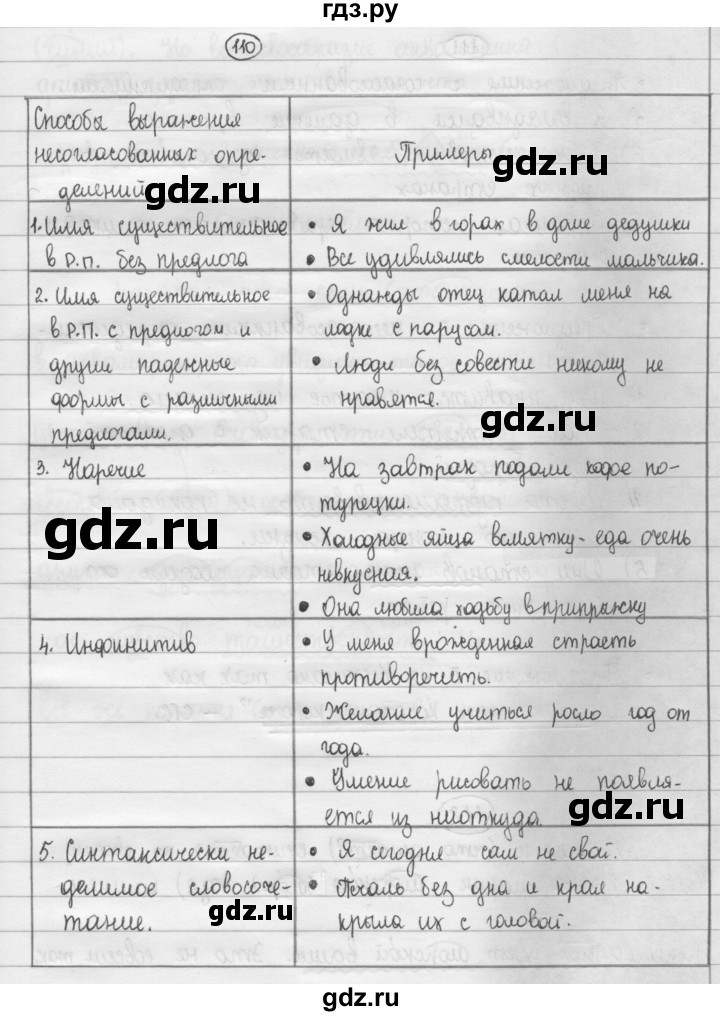 гдз.ру
110
Способы выражения
несогласованных опре-
делений
Примеры
gdz.ru
1. Имя существительное
в Р.П. без предлога
• Я жил в горах в доме дедушки
• Все удивлялись смелости мальчика.
gdz.ru
2. Имя существительное
в Р.П. с предлогом и
другии падежные
формы с различными
предлогами.
• Однажды отец катал меня на
лодке с парусом.
• Люди без совести никому не
нравятся.
gdz.ru
3. Наречие
gdz.ru
• На завтрак подали кофе по-
турецки.
• Холодные яйца всмятку- еда очень
невкусная.
• Она любила ходьбу вприпрыжку
4. Инфинитив
• У меня врожденная страсть
противоречить.
• Желание учиться росло год от
года.
• Умение рисовать не появля-
ется из ниоткуда.
gdz.ru
5. Синтаксически не-
делимое словосоче-
тание.
gdz.ru
• Я сегодня сам не свой.
• Печаль без дна и края на-
крыла их с головой.
gdz.ru